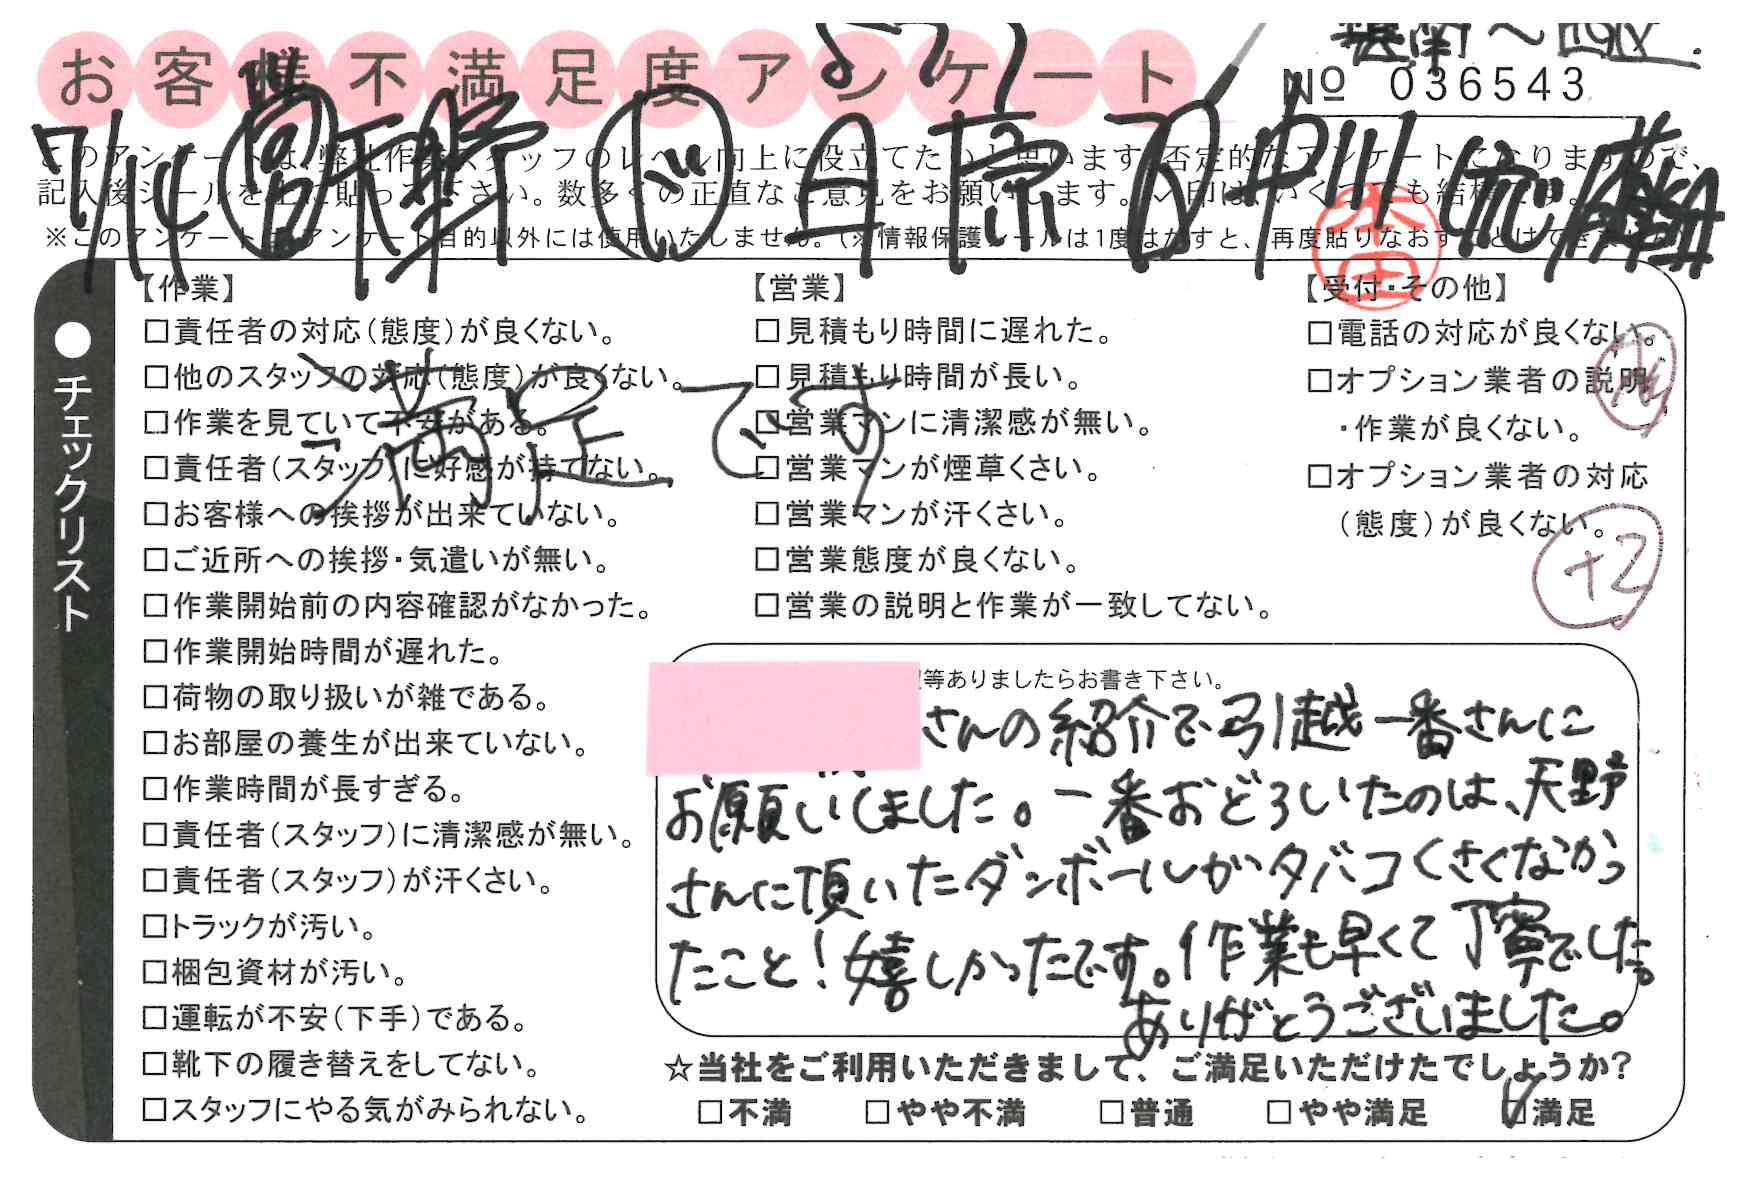 お客様不満足度アンケート
No 036543
7/14
このアンケートは、弊社作業スタッフのレベル向上に役立てたいと思います。否定的なアンケートになりますので、
記入後シールを上に貼って下さい。数多くの正直なご意見をお願いします。✓印は、いくつでも結構です。
※このアンケートは、アンケート目的以外には使用いたしません。(※情報保護シールは1度はがすと、再度貼りなおすことはできません)
本田
●チェックリスト
【作業】
□責任者の対応(態度)が良くない。
□他のスタッフの対応(態度)が良くない。
□作業を見ていて不安がある。
□責任者(スタッフ)に好感が持てない。
□お客様への挨拶が出来ていない。
□ご近所への挨拶・気遣いが無い。
□作業開始前の内容確認がなかった。
□作業開始時間が遅れた。
□荷物の取り扱いが雑である。
□お部屋の養生が出来ていない。
□作業時間が長すぎる。
□責任者(スタッフ)に清潔感が無い。
□責任者(スタッフ)が汗くさい。
□トラックが汚い。
□梱包資材が汚い。
□運転が不安(下手)である。
□靴下の履き替えをしてない。
□スタッフにやる気がみられない。
満足です
【営業】
□見積もり時間に遅れた。
□見積もり時間が長い。
□営業マンに清潔感が無い。
□営業マンが煙草くさい。
□営業マンが汗くさい。
□営業態度が良くない。
□営業の説明と作業が一致してない。
【受付・その他】
□電話の対応が良くない。
□オプション業者の説明
・作業が良くない。
□オプション業者の対応
(態度)が良くない。
+2
等ありましたらお書き下さい。
さんの紹介で引越一番さんに
お願いしました。一番おどろいたのは、天野
さんに頂いたダンボールがタバコくさくなかっ
たこと!嬉しかったです。作業も早くて丁寧でした。
ありがとうございました。
☆当社をご利用いただきまして、ご満足いただけたでしょうか?
□不満 □やや不満 □普通 □やや満足 ☑満足